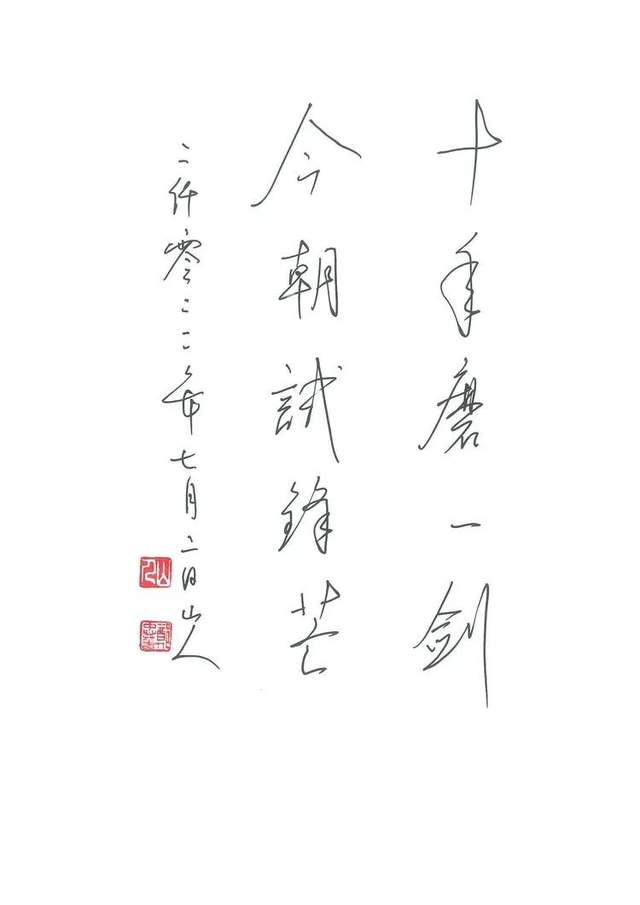 十年磨一剑
今朝試鋒芒
二仟零二二年七月二日山人
山人